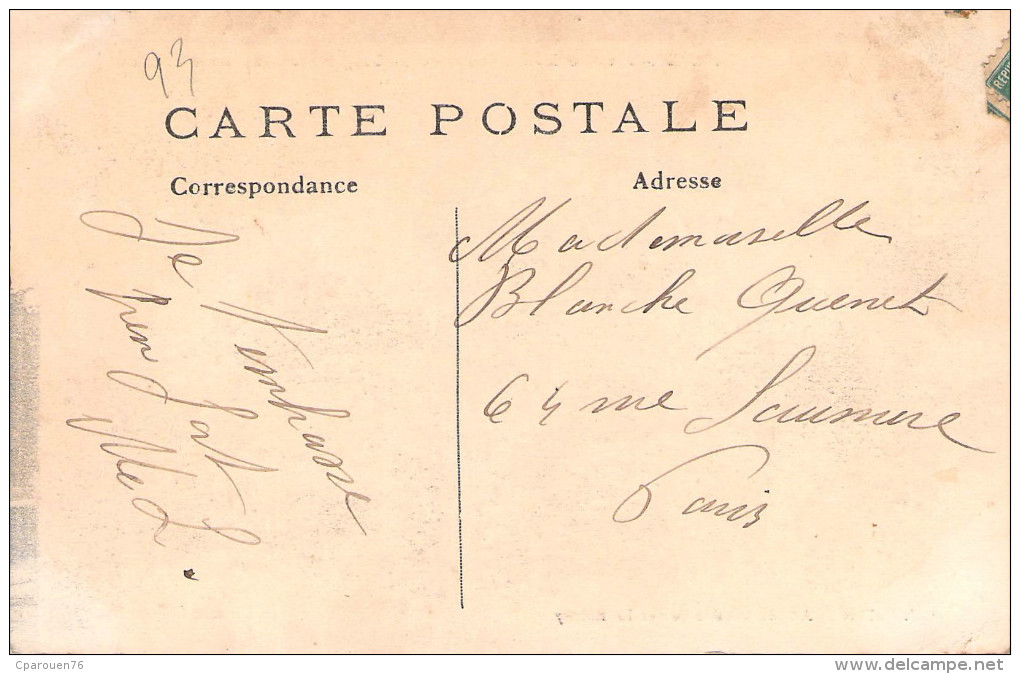 93
CARTE POSTALE
Correspondance
Adresse
REPU
Je t'embrasse
bien fort
Mademoiselle
Blanche Quenet
64 rue Saumure
Paris
Cparouen76
www.delcampe.net